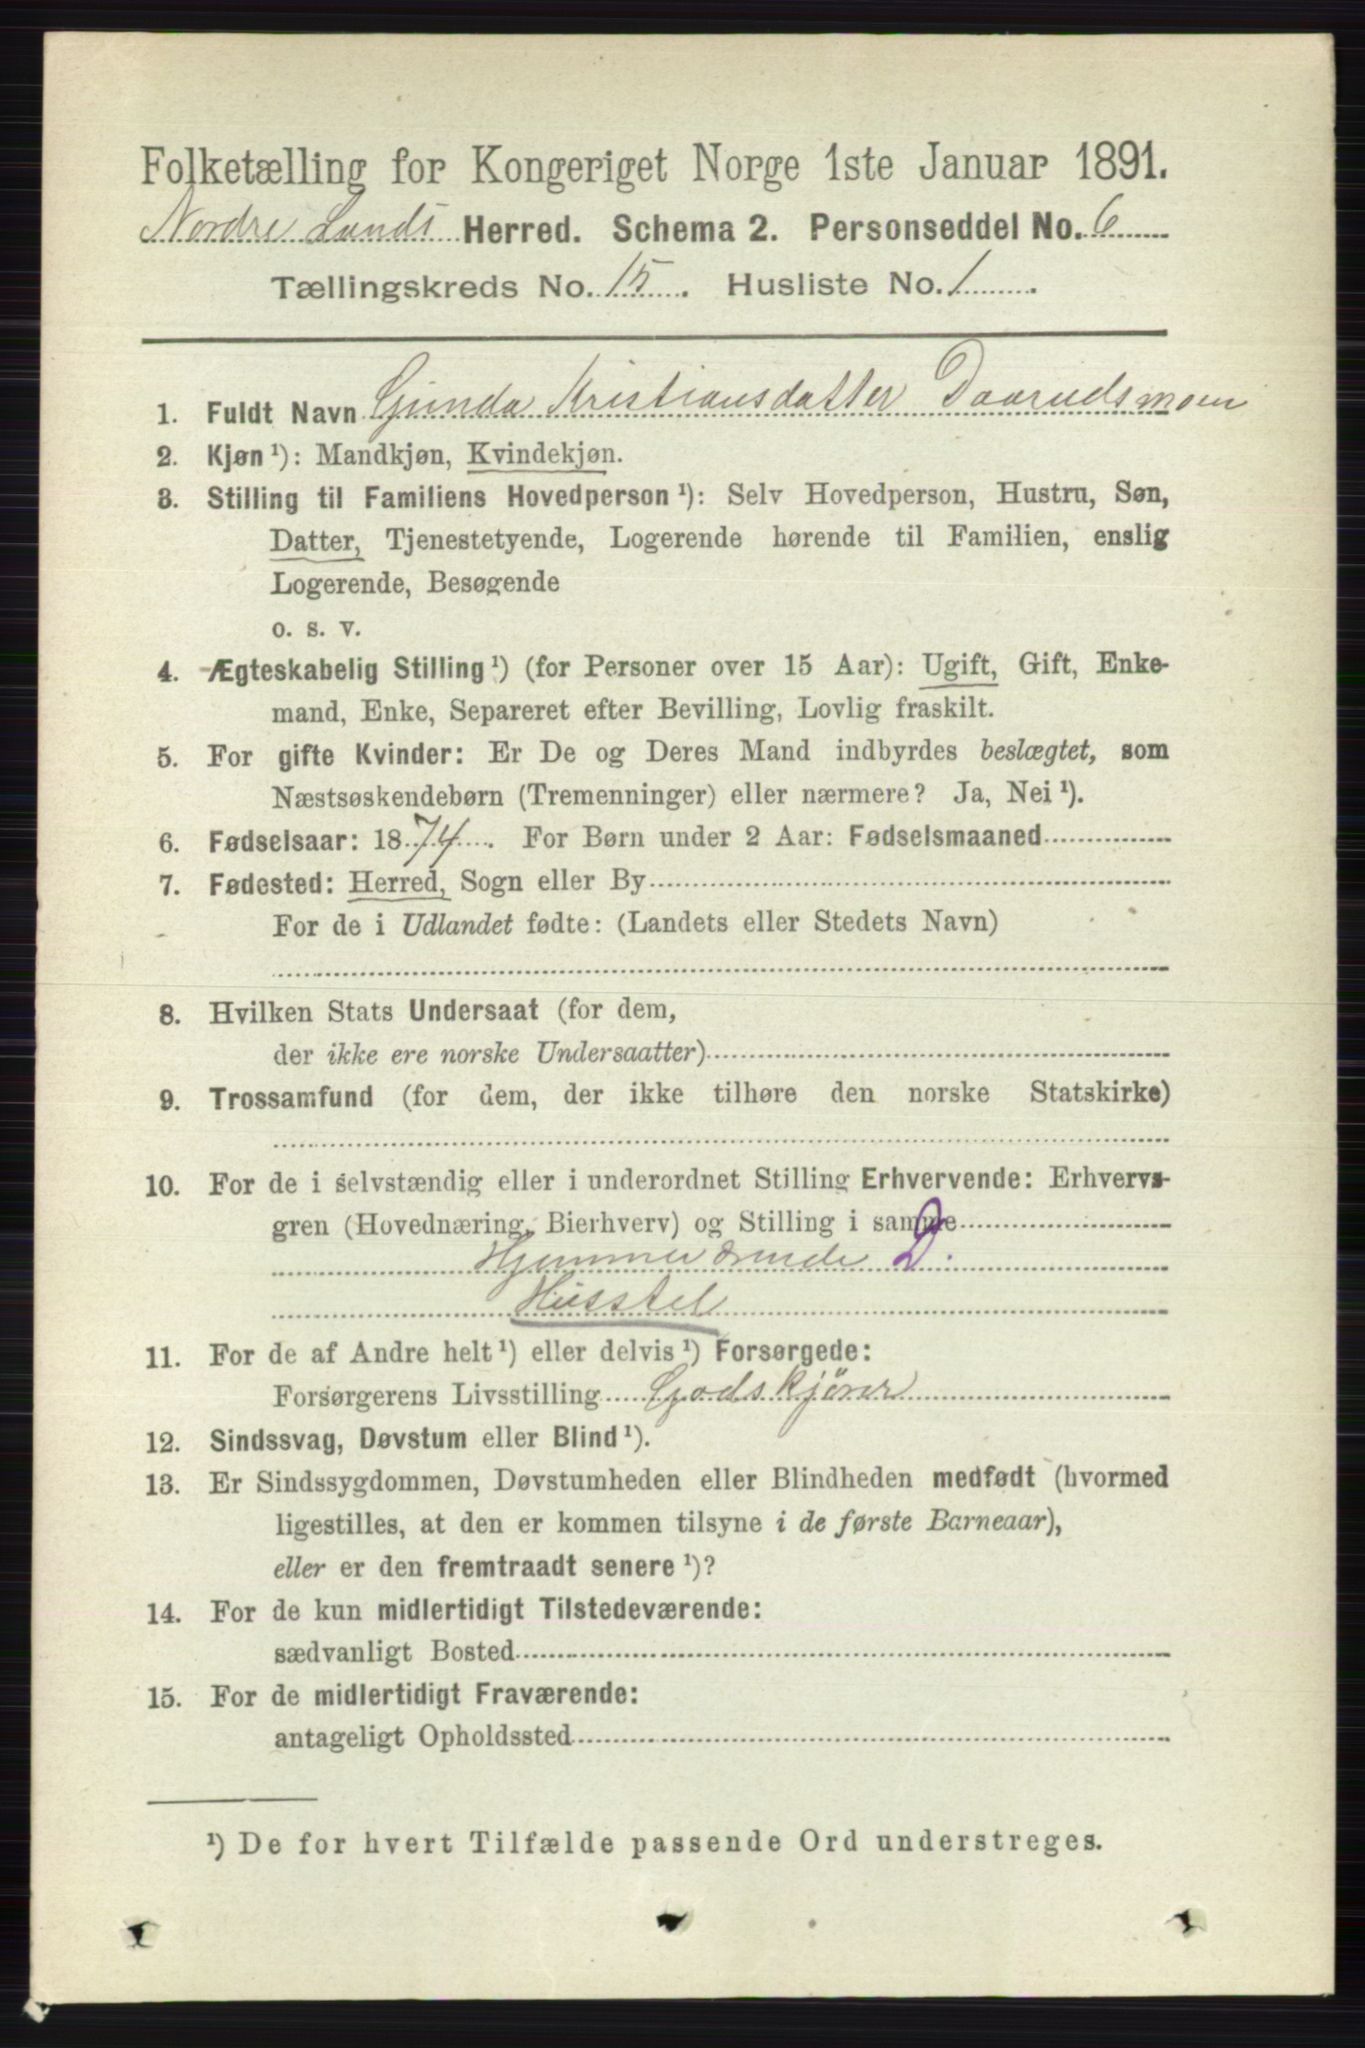 Folketælling for Kongeriget Norge 1ste Januar 1891.
Nordre Lands Herred. Schema 2. Personseddel No. 6
Tællingskreds No. 15. Husliste No. 1.
1. Fuldt Navn Gunda Kristiansdatter Daarudsmoen
2. Kjøn ¹): Mandkjøn, Kvindekjøn.
3. Stilling til Familiens Hovedperson ¹): Selv Hovedperson, Hustru, Søn,
Datter, Tjenestetyende, Logerende hørende til Familien, enslig
Logerende, Besøgende
o. s. v.
4. Ægteskabelig Stilling ¹) (for Personer over 15 Aar): Ugift, Gift, Enke-
mand, Enke, Separeret efter Bevilling, Lovlig fraskilt.
5. For gifte Kvinder: Er De og Deres Mand indbyrdes beslægtet, som
Næstsøskendebørn (Tremenninger) eller nærmere? Ja, Nei ¹).
6. Fødselsaar: 1874. For Børn under 2 Aar: Fødselsmaaned
7. Fødested: Herred, Sogn eller By
For de i Udlandet fødte: (Landets eller Stedets Navn)
8. Hvilken Stats Undersaat (for dem,
der ikke ere norske Undersaatter)
9. Trossamfund (for dem, der ikke tilhøre den norske Statskirke)
10. For de i selvstændig eller i underordnet Stilling Erhvervende: Erhvervs-
gren (Hovednæring, Bierhverv) og Stilling i samme
Hjemmeværende D.
Husstel
11. For de af Andre helt ¹) eller delvis ¹) Forsørgede:
Forsørgerens Livsstilling Godskjörer
12. Sindssvag, Døvstum eller Blind ¹).
13. Er Sindssygdommen, Døvstumheden eller Blindheden medfødt (hvormed
ligestilles, at den er kommen tilsyne i de første Barneaar),
eller er den fremtraadt senere ¹)?
14. For de kun midlertidigt Tilstedeværende:
sædvanligt Bosted
15. For de midlertidigt Fraværende:
antageligt Opholdssted
¹) De for hvert Tilfælde passende Ord understreges.